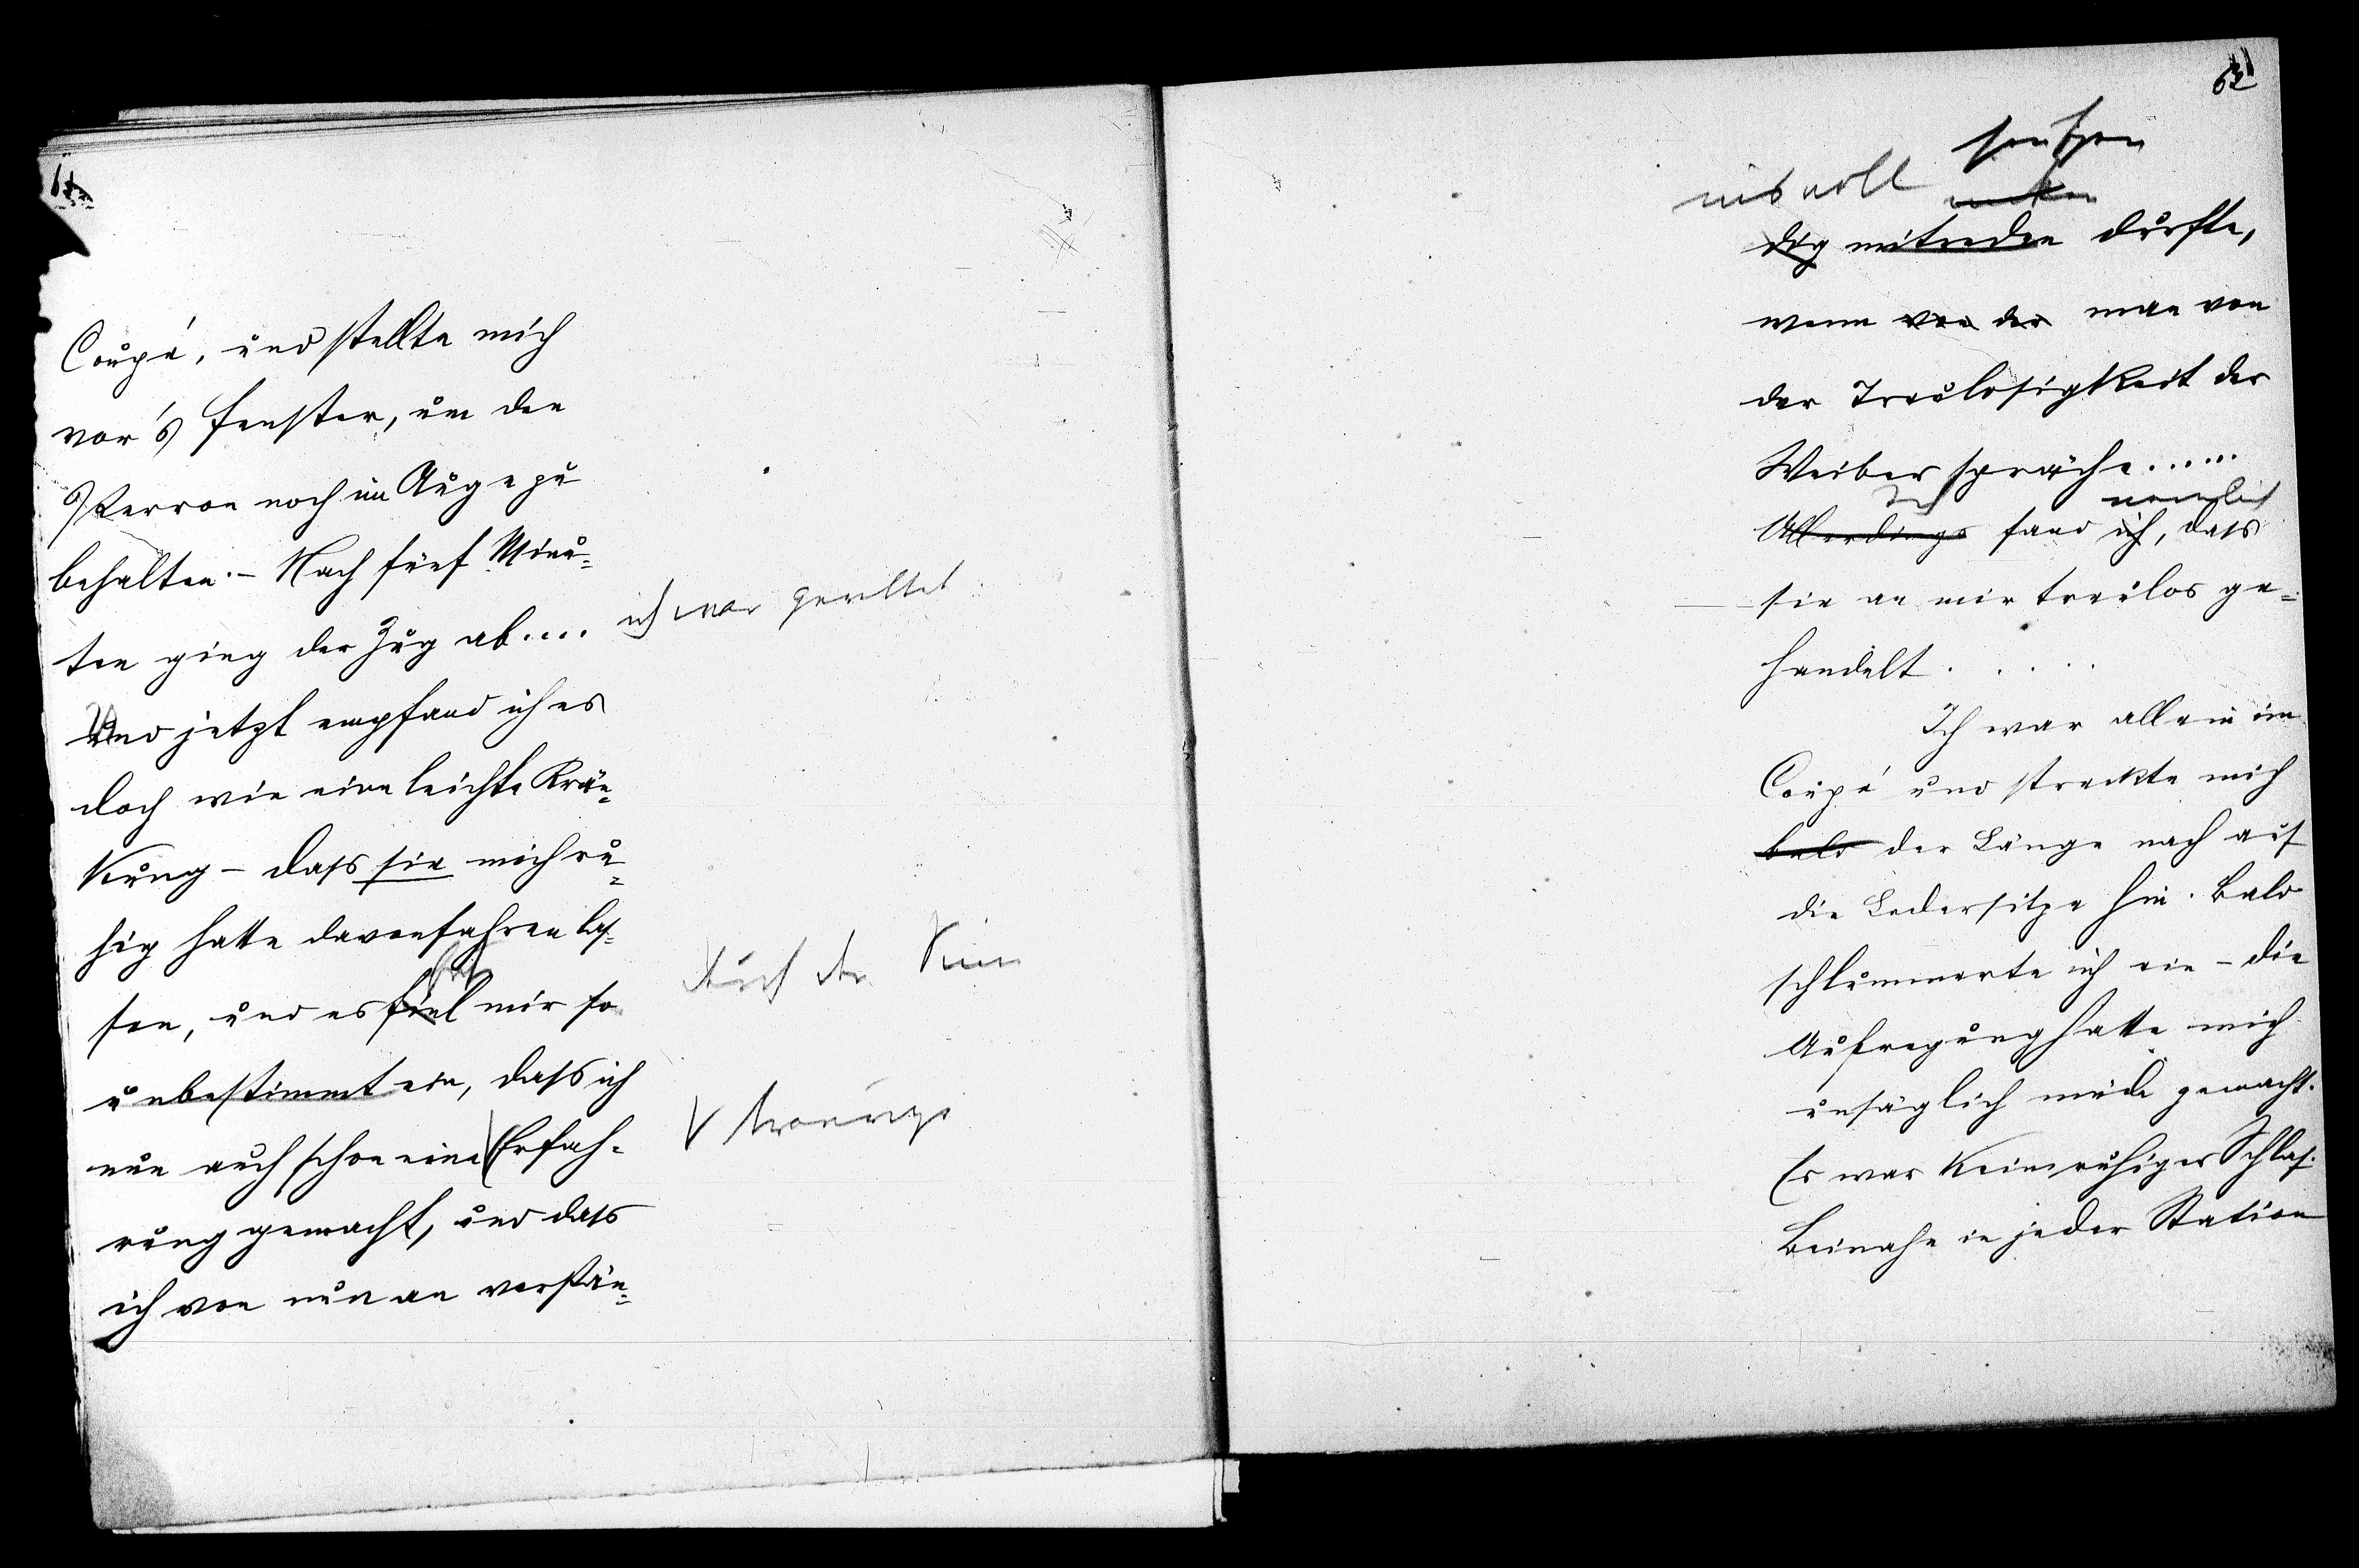 Coupé, und stellte mich
vor's Fenster, um den
Perron noch im Auge zu
behalten. – Nach fünf Minu=
ten ging der Zug ab.... ich war gerettet
Und jetzt empfand ich es
doch wie eine leichte Krän=
kung – dass sie mich ru=
hig hatte davonfahren las=
sen, und es fiel mir so durch den Sinn
unbestimmt ein, dass ich
nun auch schon eine Erfah= V traurige
rung gemacht, und dass
ich von nun an verstän=
63
seufzen
nisvoll
dig mitreden dürfte,
wenn von der man von
der Treulosigkeit der
Weiber spräche......
Ich nemlich
Allerdings fand ich, dass
sie an mir treulos ge=
handelt.....
Ich war allein im
Coupé und streckte mich
bald der Länge nach auf
die Ledersitze hin. Bald
schlummerte ich ein – die
Aufregung hatte mich
unsäglich müde gemacht.
Es war kein ruhiger Schlaf.
Beinahe in jeder Station